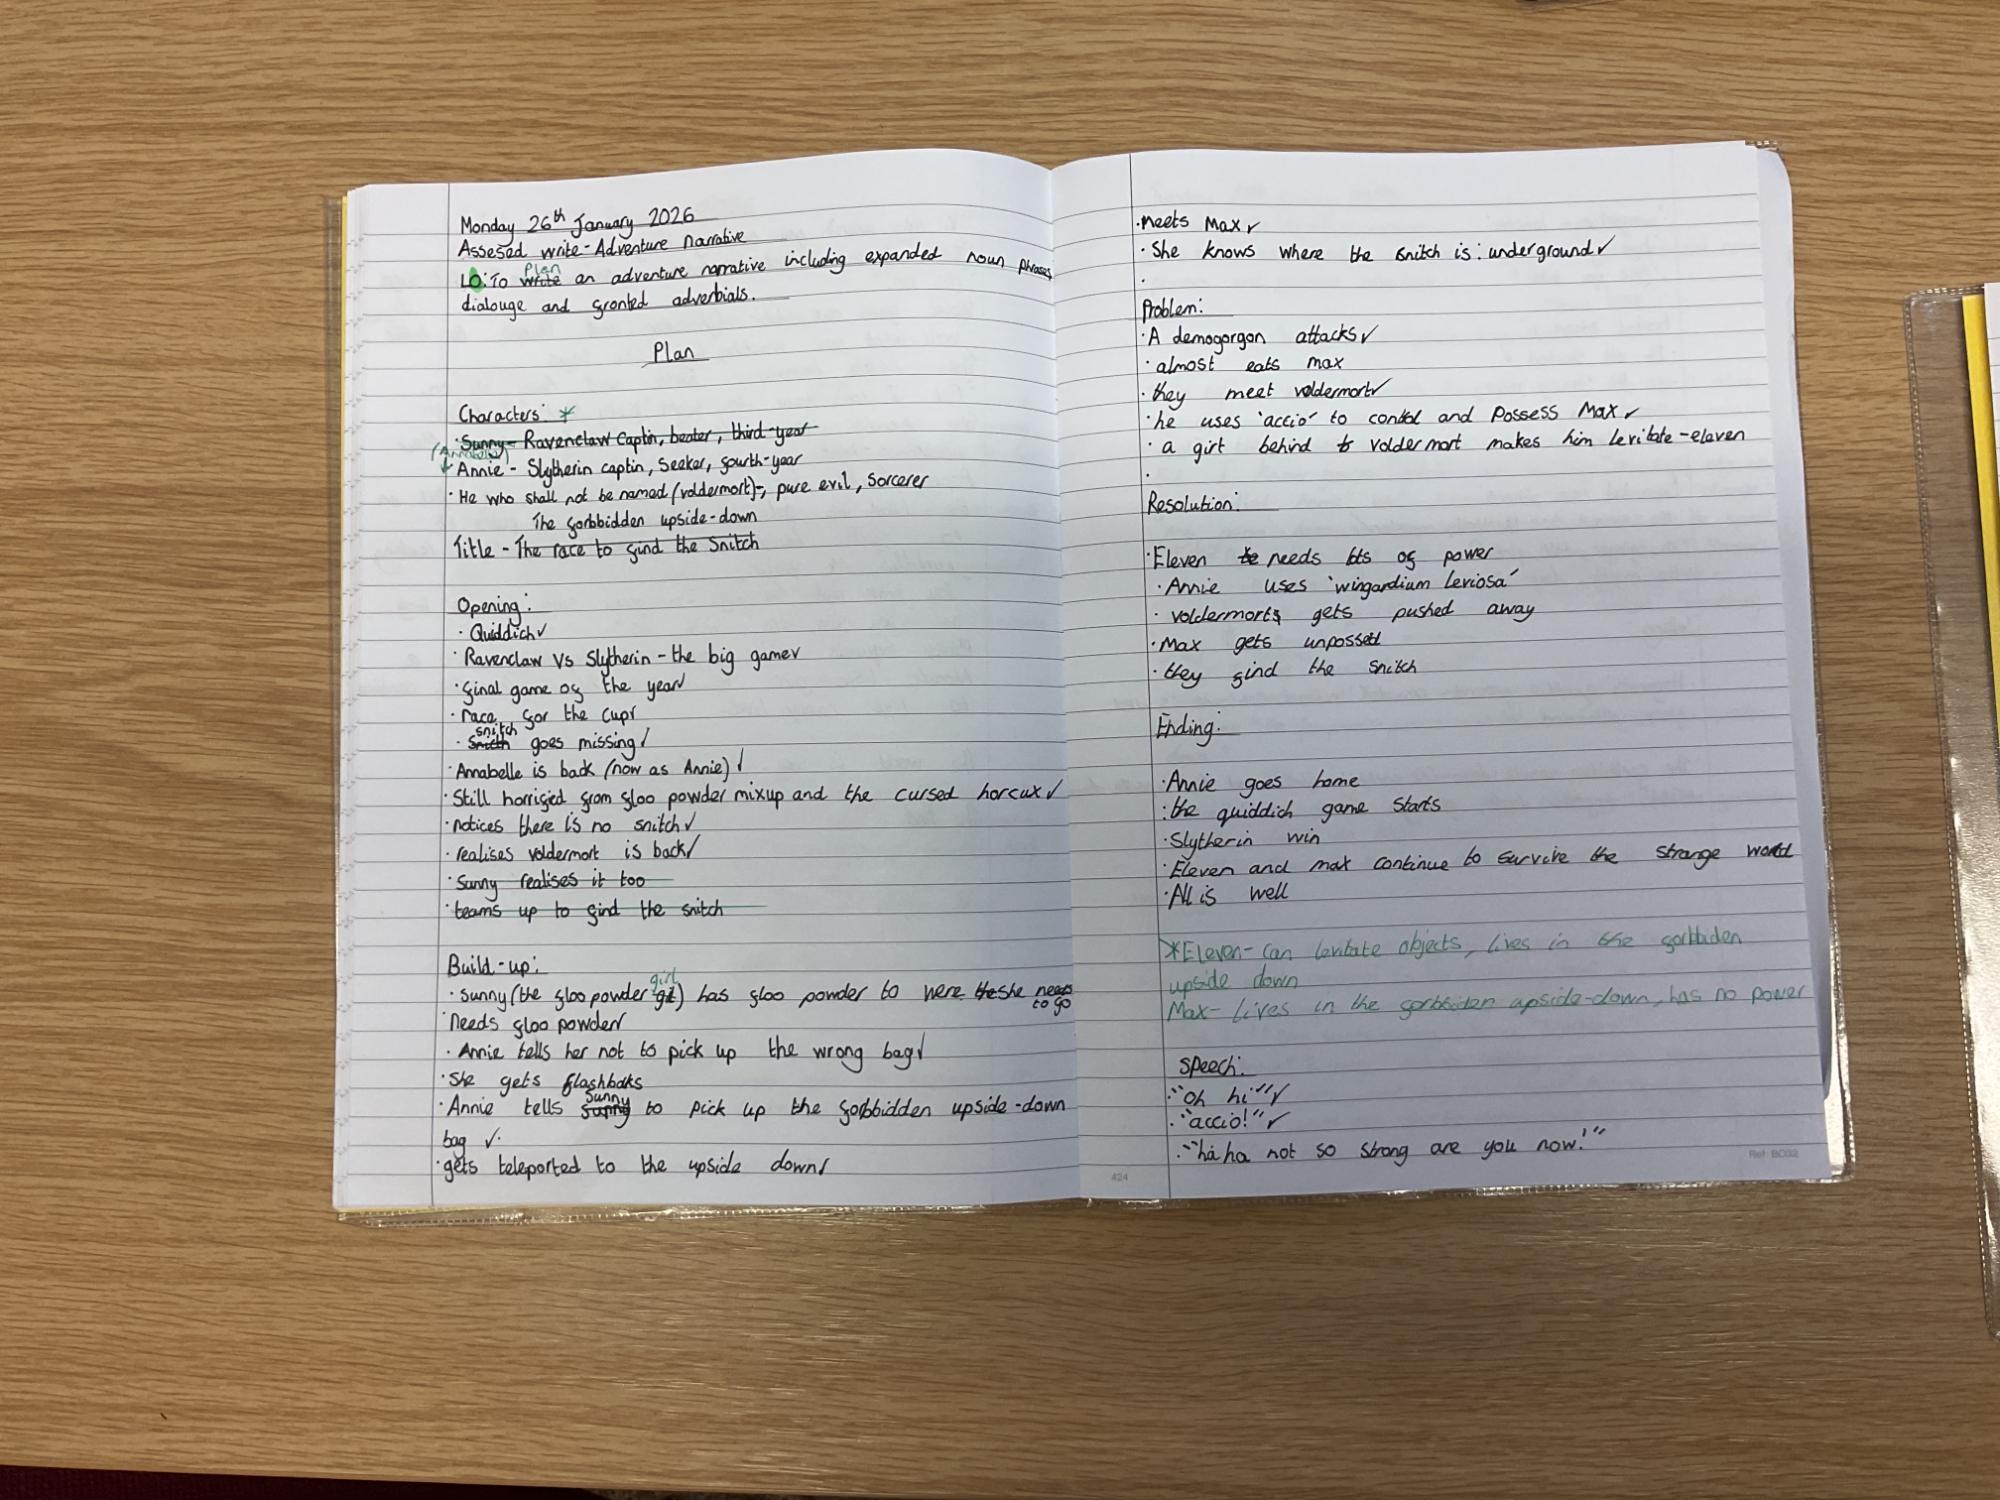 Monday 26th January 2026
Assesed write - Adventure narrative
LO: To write plan an adventure narrative including expanded noun phrases
dialouge and fronted adverbials.
Plan
Characters: *
· Sunny - Ravenclaw captin, beater, third-year
(Annabelle)
· Annie - Slytherin captin, Seeker, fourth-year
· He who shall not be named (voldermort)-, pure evil, sorcerer
The forbbidden upside-down
Title - The race to find the Snitch
Opening:
· Quiddich✓
· Ravenclaw Vs Slytherin - the big game✓
· final game of the year✓
· race for the cup✓
snitch
· goes missing✓
· Annabelle is back (now as Annie)✓
· Still horrified from floo powder mixup and the cursed horcux✓
· notices there is no snitch✓
· realises voldermort is back✓
· Sunny realises it too
· teams up to find the snitch
Build-up:
· Sunny (the floo powder girl) has floo powder to were she needs
to go
needs floo powder✓
· Annie tells her not to pick up the wrong bag✓
· She gets flashbaks
· Annie tells Sunny to pick up the forbbidden upside-down
bag ✓
· gets teleported to the upside down✓
· meets Max ✓
· She knows where the snitch is: underground✓
·
Problem:
· A demogorgon attacks✓
· almost eats max
· they meet voldermort✓
· he uses 'accio' to contol and Possess Max ✓
· a girl behind voldermort makes him levitate - eleven
·
Resolution:
· Eleven needs lots of power
· Annie uses 'wingardium leviosa'
· voldermort gets pushed away
· Max gets unpossed
· they find the snitch
Ending:
· Annie goes home
· the quiddich game starts
· Slytherin win
· Eleven and max continue to survive the strange world
· All is well
*Eleven - can levitate objects, lives in the forbbiden
upside down
Max - lives in the forbbiden upside-down, has no power
Speech:
· "Oh hi" ✓
· "accio!" ✓
· "ha ha not so strong are you now!"
424
Ref: BD32